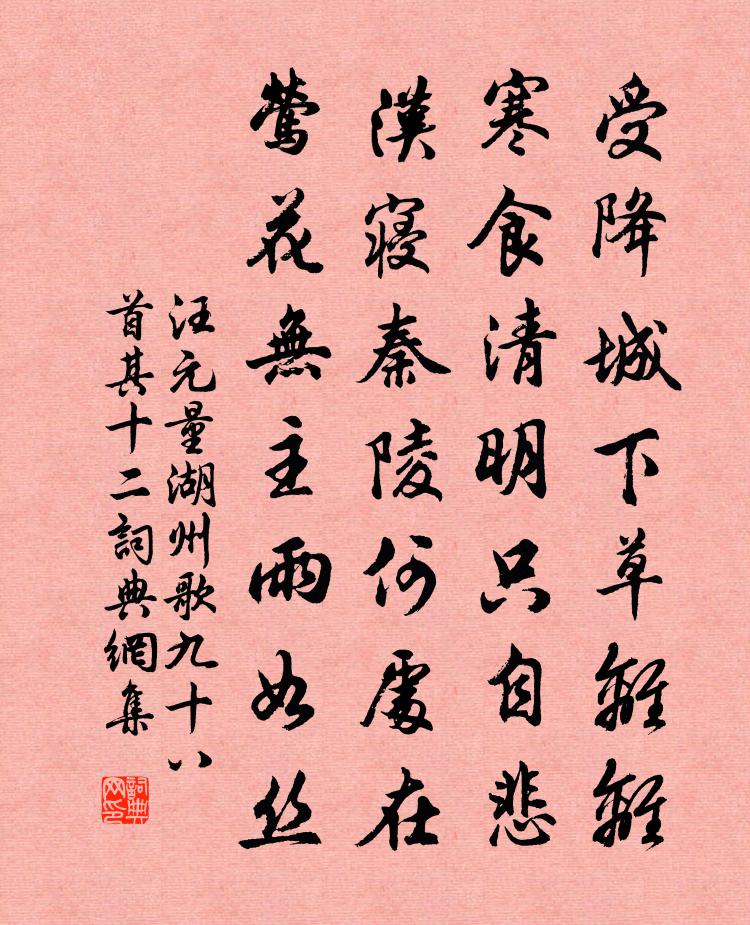 受降城下草離離
寒食清明只自悲
漢寢秦陵何處在
鶯花無主雨如丝
汪元量湖州歌九十八
首其十二詞典網集
詞典网印